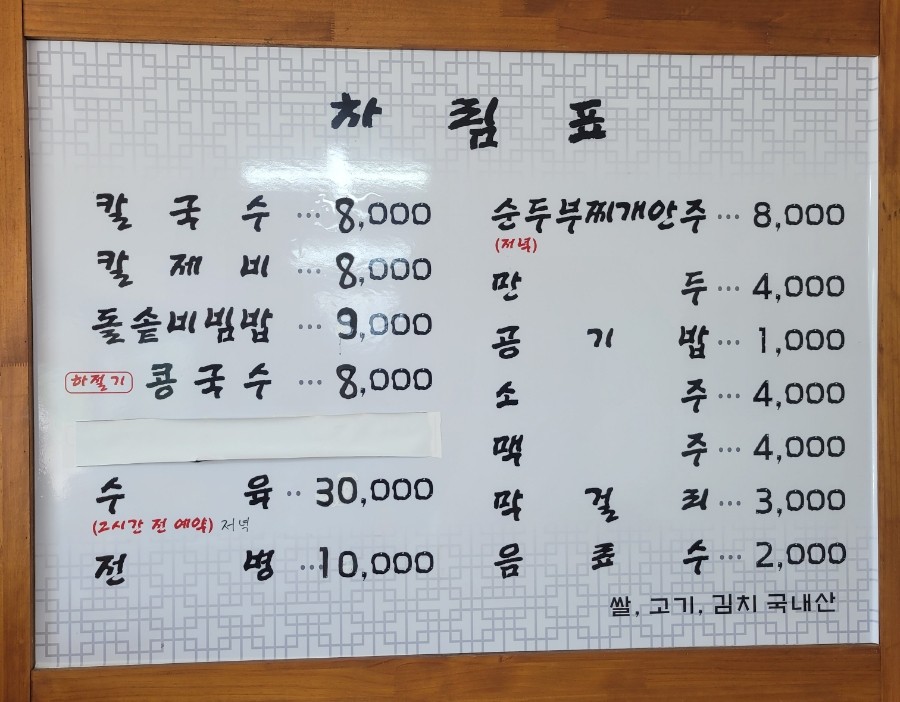 차림표
칼국수 ... 8,000
칼제비 ... 8,000
돌솥비빔밥 ... 9,000
하절기 콩국수 ... 8,000
수육 .. 30,000
(2시간 전 예약) 저녁
전병 ... 10,000
순두부찌개안주 ... 8,000
(저녁)
만두 ... 4,000
공기밥 ... 1,000
소주 ... 4,000
맥주 ... 4,000
막걸리 ... 3,000
음료수 ... 2,000
쌀, 고기, 김치 국내산